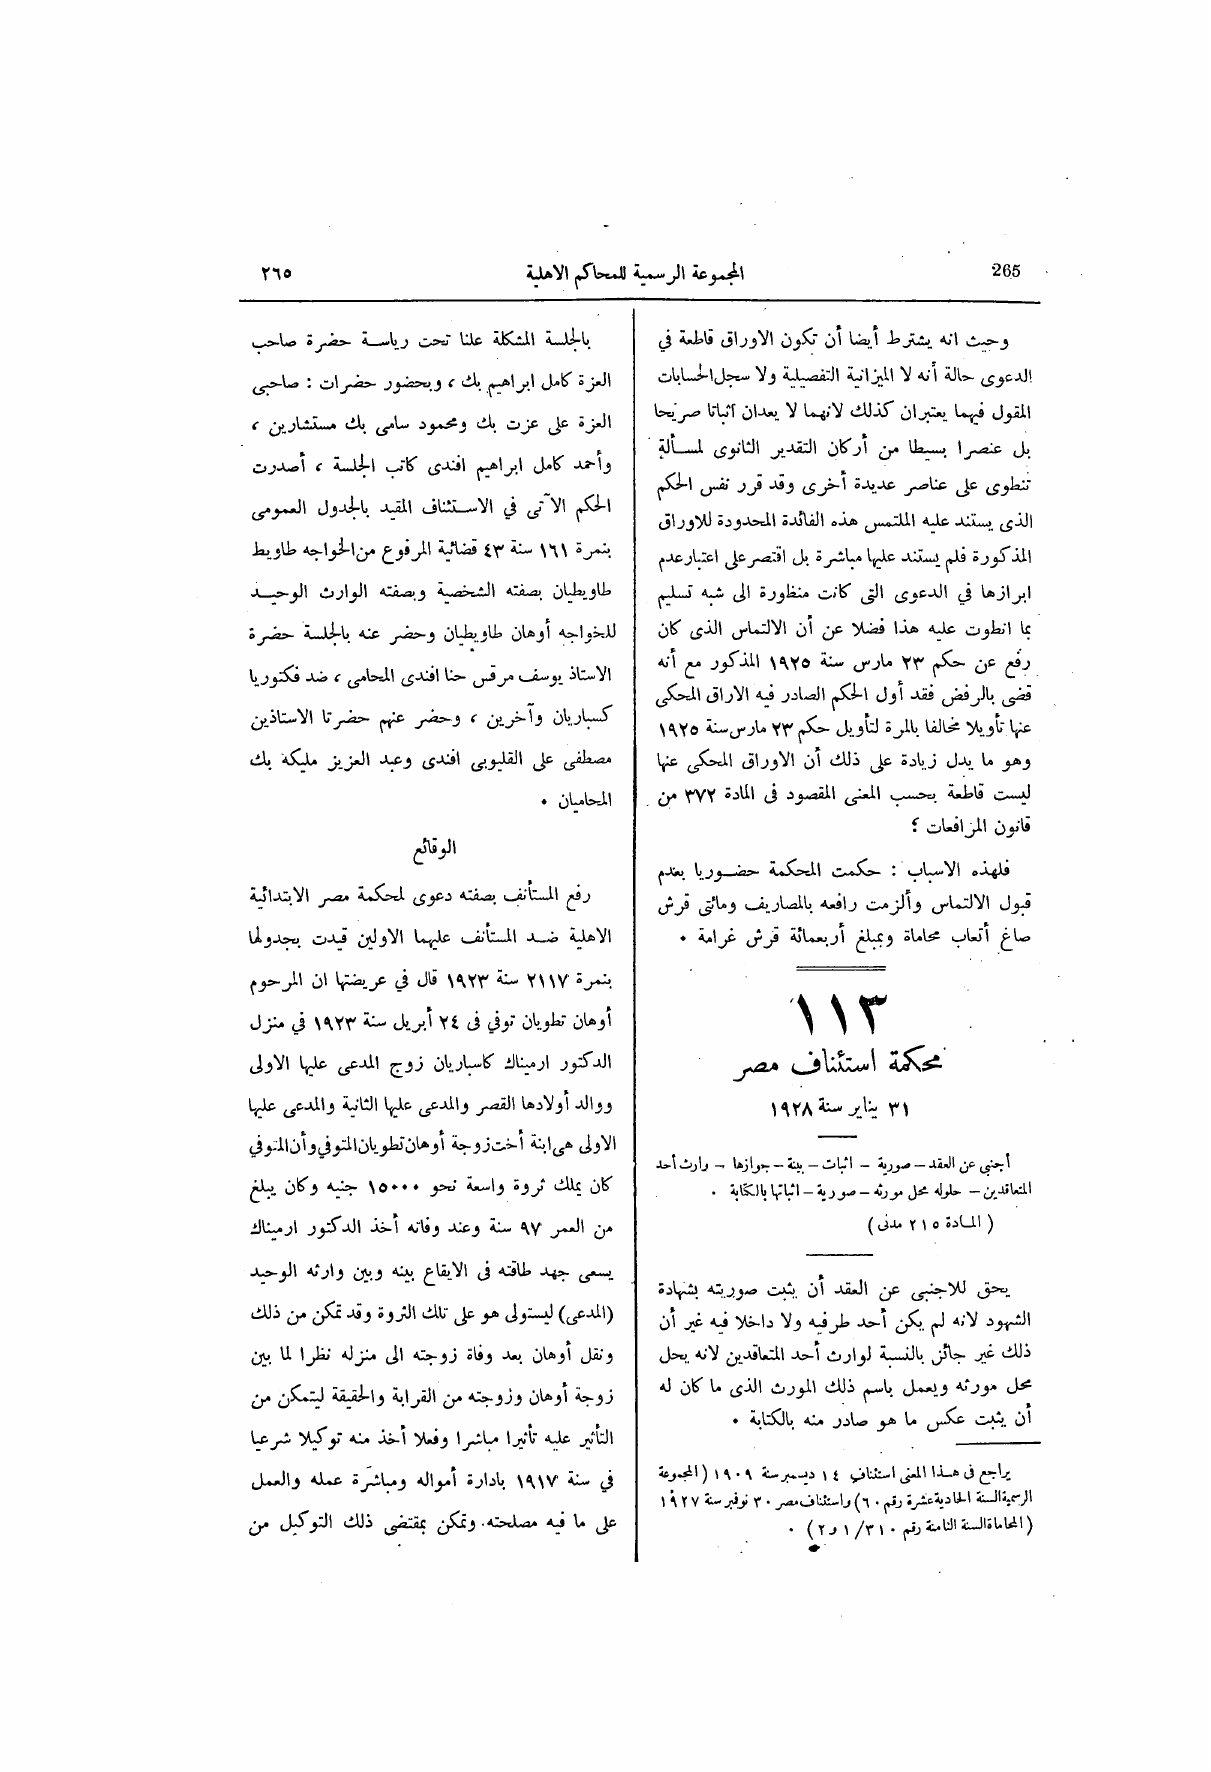 265
المجموعة الرسمية للمحاكم الاهلية
٢٦٥
وحيث انه يشترط أيضا أن تكون الاوراق قاطعة في
الدعوى حالة أنه لا الميزانية التفصيلية ولا سجل الحسابات
المقول فيهما يعتبران كذلك لانهما لا يعدان اثباتا صريحا
بل عنصرا بسيطا من أركان التقدير الثانوى لمسألة
تنطوى على عناصر عديدة أخرى وقد قرر نفس الحكم
الذى يستند عليه الملتمس هذه الفائدة المحدودة للاوراق
المذكورة فلم يستند عليها مباشرة بل اقتصر على اعتبار عدم
ابرازها في الدعوى التى كانت منظورة الى شبه تسليم
بما انطوت عليه هذا فضلا عن أن الالتماس الذى كان
رفع عن حكم ٢٣ مارس سنة ١٩٢٥ المذكور مع أنه
قضى بالرفض فقد أول الحكم الصادر فيه الاراق المحكى
عنها تأويلا مخالفا بالمرة لتأويل حكم ٢٣ مارس سنة ١٩٢٥
وهو ما يدل زيادة على ذلك أن الاوراق المحكى عنها
ليست قاطعة بحسب المعنى المقصود فى المادة ٣٧٢ من
قانون المرافعات ؟
فلهذه الاسباب : حكمت المحكمة حضوريا بعدم
قبول الالتماس وألزمت رافعه بالمصاريف ومائتى قرش
صاغ أتعاب محاماة وبمبلغ أربعمائة قرش غرامة .
١١٣
محكمة استئناف مصر
٣١ يناير سنة ١٩٢٨
أجنبى عن العقد - صورية - اثبات - بينة - جوازها - وارث أحد
المتعاقدين - حلوله محل مورثه - صورية - اثباتها بالكتابة .
( المادة ٢١٥ مدنى )
يحق للاجنبى عن العقد أن يثبت صوريته بشهادة
الشهود لانه لم يكن أحد طرفيه ولا داخلا فيه غير أن
ذلك غير جائز بالنسبة لوارث أحد المتعاقدين لانه يحل
محل مورثه ويعمل باسم ذلك المورث الذى ما كان له
أن يثبت عكس ما هو صادر منه بالكتابة .
يراجع فى هذا المعنى استئناف ١٤ ديسمبر سنة ١٩٠٩ (المجموعة
الرسمية السنة الحادية عشرة رقم ٦٠) واستئناف مصر ٣٠ نوفمبر سنة ١٩٢٧
(المحاماة السنة الثامنة رقم ٣١٠/ ١ و٢) .
بالجلسة المشكلة علنا تحت رياسة حضرة صاحب
العزة كامل ابراهيم بك ، وبحضور حضرات : صاحبى
العزة على عزت بك ومحمود سامى بك مستشارين ،
وأحمد كامل ابراهيم افندى كاتب الجلسة ، أصدرت
الحكم الآتى في الاستئناف المقيد بالجدول العمومى
بنمرة ١٦١ سنة ٤٣ قضائية المرفوع من الخواجه طاويط
طاويطيان بصفته الشخصية وبصفته الوارث الوحيد
للخواجه أوهان طاويطيان وحضر عنه بالجلسة حضرة
الاستاذ يوسف مرقس حنا افندى المحامى ، ضد فكتوريا
كسباريان وآخرين ، وحضر عنهم حضرتا الاستاذين
مصطفى على القليوبى افندى وعبد العزيز مليكه بك
المحاميان .
الوقائع
رفع المستأنف بصفته دعوى لمحكمة مصر الابتدائية
الاهلية ضد المستأنف عليهما الاولين قيدت بجدولها
بنمرة ٢١١٧ سنة ١٩٢٣ قال في عريضتها ان المرحوم
أوهان تطويان توفي فى ٢٤ أبريل سنة ١٩٢٣ في منزل
الدكتور ارميناك كاسباريان زوج المدعى عليها الاولى
ووالد أولادها القصر والمدعى عليها الثانية والمدعى عليها
الاولى هى ابنة أخت زوجة أوهان تطويان المتوفي وأن المتوفي
كان يملك ثروة واسعة نحو ١٥٠٠٠ جنيه وكان يبلغ
من العمر ٩٧ سنة وعند وفاته أخذ الدكتور ارميناك
يسعى جهد طاقته فى الايقاع بينه وبين وارثه الوحيد
(المدعى) ليستولى هو على تلك الثروة وقد تمكن من ذلك
ونقل أوهان بعد وفاة زوجته الى منزله نظرا لما بين
زوجة أوهان وزوجته من القرابة والحقيقة ليتمكن من
التأثير عليه تأثيرا مباشرا وفعلا أخذ منه توكيلا شرعيا
في سنة ١٩١٧ بادارة أمواله ومباشرة عمله والعمل
على ما فيه مصلحته. وتمكن بمقتضى ذلك التوكيل من